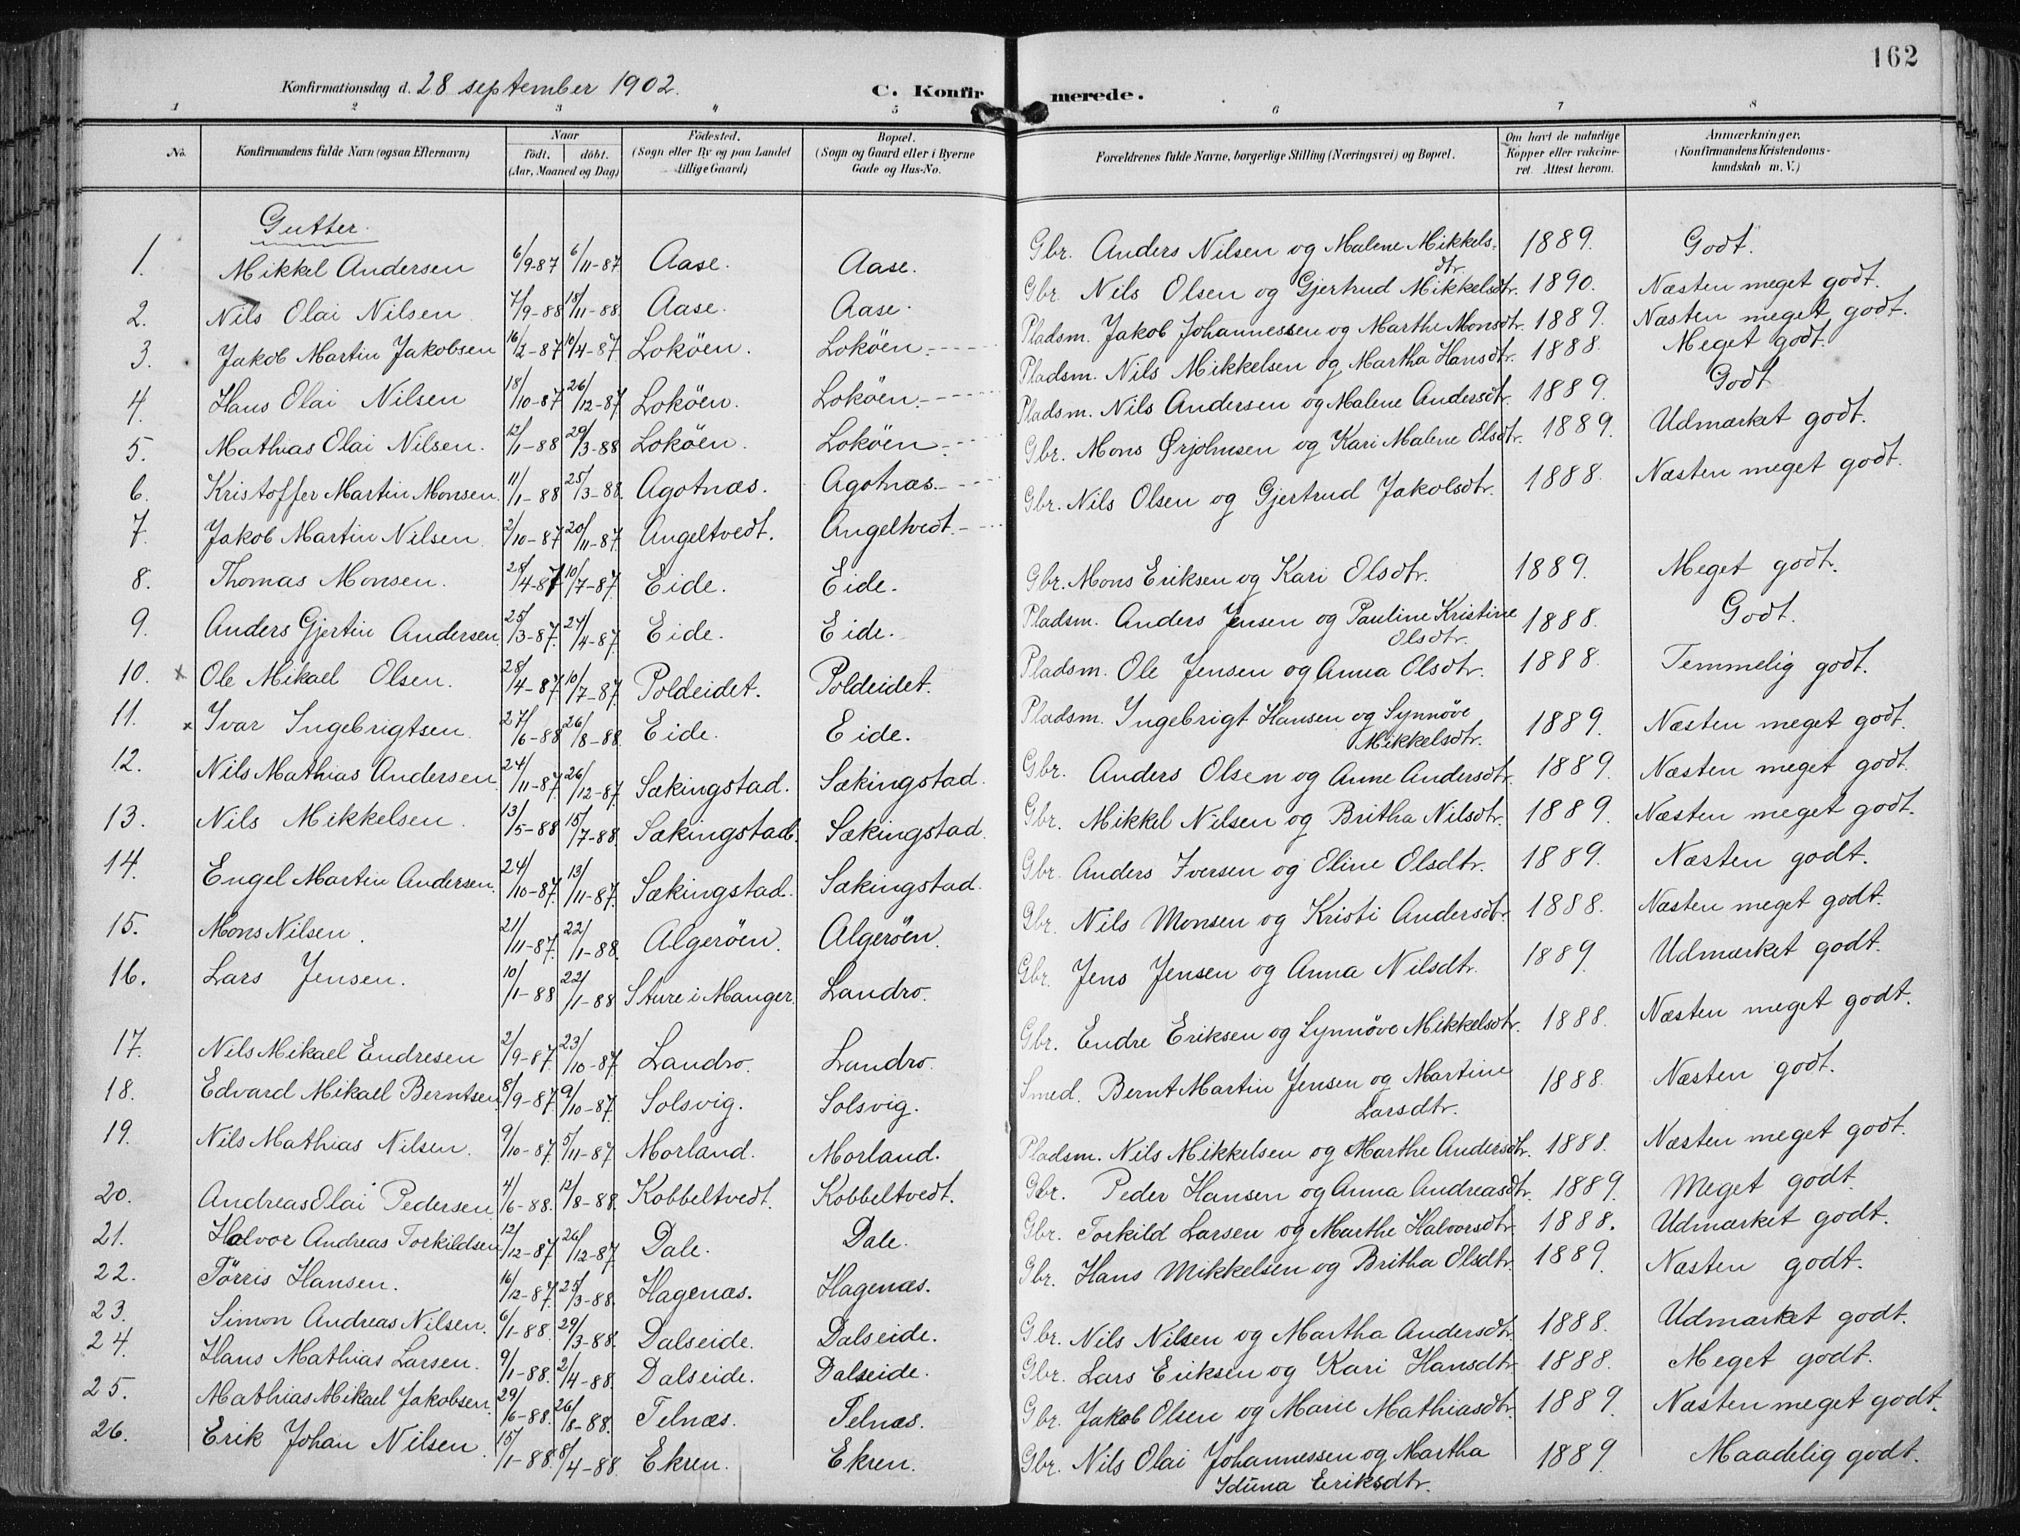 162
Konfirmationsdag d. 28 september 1902.
C. Konfirmerede.
1 2 3 " 5 6 7 8
No. Konfirmandens fulde Navn (ogsaa Efternavn) Naar födt. döbt. (Aar, Maaned og Dag) Födested. (Sogn eller By og paa Landet tillige Gaard) Bopæl. (Sogn og Gaard eller i Byerne Gade og Hus-No. Forældrenes fulde Navne, borgerlige Stilling (Næringsvei) og Bopæl. Om havt de naturlige Kopper eller vakcineret. Attest herom. Anmærkninger. (Konfirmandens Kristendomskundskab m. V.)
Gutter.
1. Mikkel Andersen 6/9-87 6/11-87 Aase. Aase. Gbr. Anders Nilsen og Malene Mikkelsdtr. 1889. Godt.
2. Nils Olai Nilsen 7/9-88 18/11-88 Aase. Aase. Gbr. Nils Olsen og Gjertrud Mikkelsdtr. 1890. Næsten meget godt.
3. Jakob Martin Jakobsen 16/2-87 10/4-87 Loköen. Loköen. Pladsm. Jakob Johannessen og Marthe Monsdtr. 1889. Næsten meget godt.
4. Hans Olai Nilsen 18/10-87 26/12-87 Loköen. Loköen. Pladsm. Nils Mikkelsen og Martha Hansdtr. 1888. Meget godt.
5. Mathias Olai Nilsen. 12/1-88 29/3-88 Loköen. Loköen. Pladsm. Nils Andersen og Malene Andersdtr. 1889. Godt
6. Kristoffer Martin Monsen 11/1-88 25/3-88. Agotnæs. Agotnæs. Gbr. Mons Ørjohnsen og Kari Malene Olsdtr. 1889. Udmærket godt.
7. Jakob Martin Nilsen 2/10-87 20/11-87. Angeltvedt. Angeltvedt. Gbr. Nils Olsen og Gjertrud Jakobsdtr. 1888. Næsten meget godt.
8. Thomas Monsen. 28/4-87 10/7-87. Eide. Eide. Gbr. Mons Eriksen og Kari Olsdtr. 1889. Meget godt.
9. Anders Gjertin Andersen 25/3-87. 24/4-87. Eide. Eide. Pladsm. Anders Jensen og Pauline Kristine Olsdtr. 1888. Godt.
10. x Ole Mikael Olsen. 28/4-87 10/7-87. Poldeidet. Poldeidet. Pladsm. Ole Jensen og Anna Olsdtr. 1888. Temmelig godt.
11. x Ivar Ingebrigtsen 27/6-88 26/8-88. Eide. Eide. Pladsm. Ingebrigt Hansen og Synnöve Mikkelsdtr. 1889. Næsten meget godt.
12. Nils Mathias Andersen 24/11-87. 26/12-87 Sækingstad. Sækingstad. Gbr. Anders Olsen og Anne Andersdtr. 1889. Næsten meget godt.
13. Nils Mikkelsen. 13/5-88 15/7-88. Sækingstad. Sækingstad. Gbr. Mikkel Nilsen og Britha Nilsdtr. 1889. Næsten meget godt.
14. Engel Martin Andersen. 24/10-87. 13/11-87. Sækingstad. Sækingstad. Gbr. Anders Iversen og Oline Olsdtr. 1889. Næsten godt.
15. Mons Nilsen. 21/11-87. 22/1-88. Algeröen. Algeröen. Gbr. Nils Monsen og Kristi Andersdtr. 1888. Næsten meget godt.
16. Lars Jensen. 10/1-88 22/1-88 Sture i Manger. Landro. Gbr. Jens Jensen og Anna Nilsdtr. 1889 Udmærket godt.
17. Nils Mikael Endresen 2/9-87. 23/10-87 Landro. Landro. Gbr. Endre Eriksen og Synnöve Mikkelsdtr. 1888. Næsten meget godt.
18. Edvard Mikael Berntsen 8/9-87 9/10-87. Solsvig. Solsvig. Smed. Bernt Martin Jensen og Martine Larsdtr. 1888. Næsten godt.
19. Nils Mathias Nilsen. 9/10-87. 5/11-87 Morland. Morland. Pladsm. Nils Mikkelsen og Marthe Andersdtr. 1888. Næsten meget godt.
20. Andreas Olai Pedersen 4/6-88. 12/8-88. Kobbeltvedt. Kobbeltvedt. Gbr. Peder Hansen og Anna Andreasdtr. 1889. Meget godt.
21. Halvor Andreas Torkildsen 12/12-87 26/12-87 Dale. Dale. Gbr. Torkild Larsen og Marthe Halvorsdtr. 1888. Udmærket godt.
22. Törris Hansen. 16/12-87. 25/3-88. Hagenæs. Hagenæs. Gbr. Hans Mikkelsen og Britha Olsdtr. 1889. Næsten godt.
23. Simon Andreas Nilsen. 6/1-88. 29/3-88. Dalseide. Dalseide. Gbr. Nils Nilsen og Martha Andersdtr. 1888. Udmærket godt.
24. Hans Mathias Larsen. 9/1-88. 2/4-88. Dalseide. Dalseide. Gbr. Lars Eriksen og Kari Hansdtr. 1888. Meget godt.
25. Mathias Mikael Jakobsen. 29/6-88. 26/8-88. Telnæs. Telnæs. Gbr. Jakob Olsen og Marie Mathiasdtr. 1889. Næsten meget godt.
26. Erik Johan Nilsen. 15/1-88. 8/4-88. Ekren. Ekren. Gbr. Nils Olai Johannessen og Martha Iduna Eriksdtr. 1889. Maadelig godt.